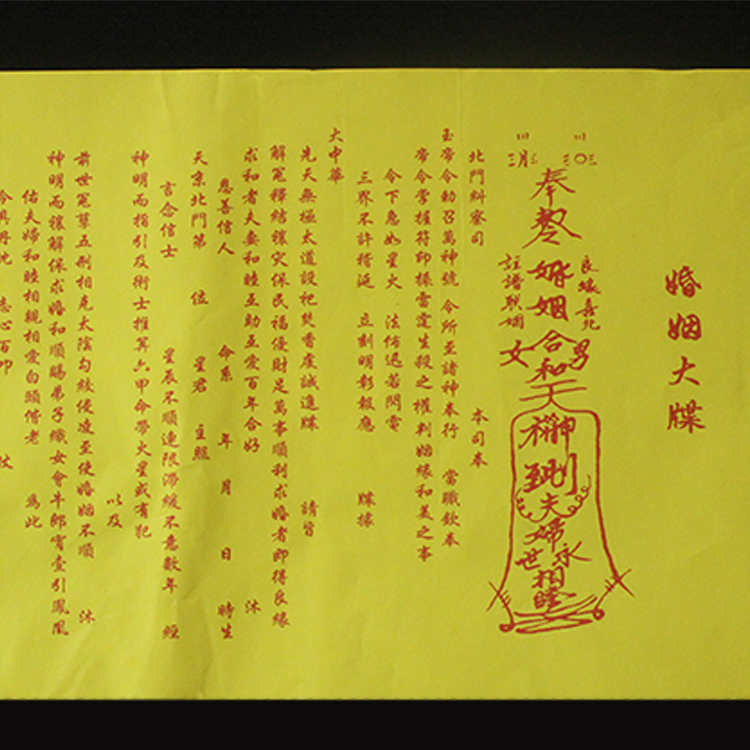 婚姻大牒
良緣喜兆
奉勅婚姻合和
男
女
註譜联姻
天
神到
夫婦永世相睦
北門糾察司 本司奉
玉帝令勅召萬神號 令所至諸神奉行 當職欽奉
帝令掌握符印操雷霆生殺之權判姻緣和美之事
令下急如星火 法仿迅若閃雷
三界不許稽延 立刻明彰報應 牒據
大中華
先天無極大道設祀焚香虔誠進牒 請旨
解冤釋結禳災保民福優財足萬事順利求婚者即得良緣
求和者夫妻和睦互助互愛百年合好 沐
恩善信人 命系 年 月 日 時生
天京北門第 位 星君 主照
言念信士 星辰不順運限滯緩不意數年 經
神明而指引及術士推算六甲命勞火星或有犯
以及
前世冤孽五刑相克太陰勾絞侵凌至使婚姻不順 沐
神明而禳解保求婚和順賜弟子織女會牛郎宵臺引鳳凰
佑夫婦和睦相親相愛白頭偕老 為此